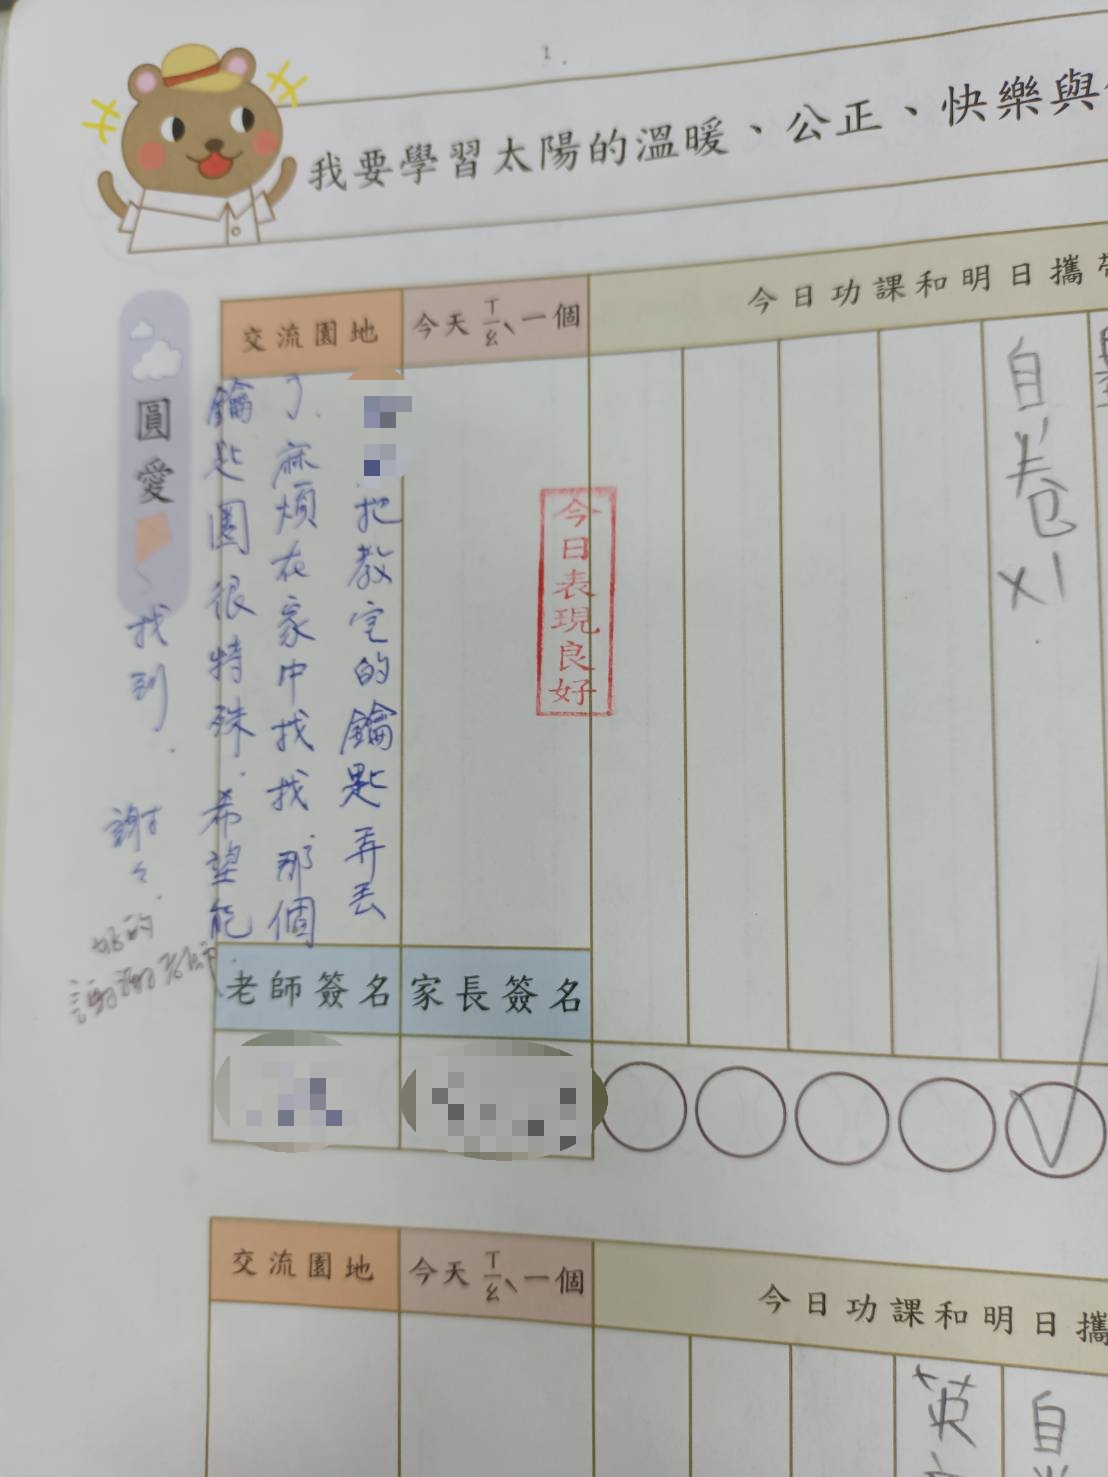 1.
我要學習太陽的溫暖、公正、快樂與
圓愛
交流園地
今天ㄒㄧㄠˋ一個
今日功課和明日攜帶
把教室的鑰匙弄丟
了.麻煩在家中找找,那個
鑰匙圈很特殊.希望能
找到.謝々.
好的
謝謝老師
今日表現良好
自卷x1
老師簽名
家長簽名
交流園地
今天ㄒㄧㄠˋ一個
今日功課和明日攜
英
自